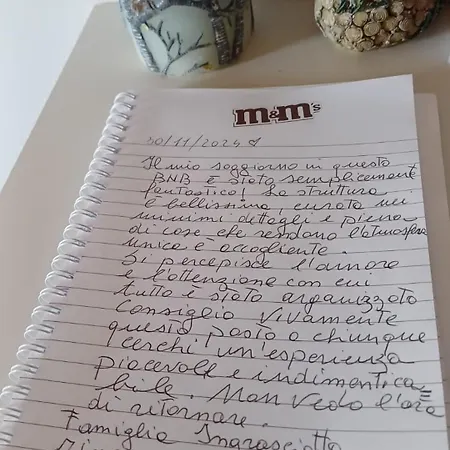 m&m's
30/11/2024
Il mio soggiorno in questo
BNB è stato semplicemente
fantastico! La struttura
è bellissima, curata nei
minimi dettagli e piena
di cose che rendono l'atmosfera
unica e accogliente.
Si percepisce l'amore
e l'attenzione con cui
tutto è stato organizzato
Consiglio vivamente
questo posto a chiunque
cerchi un'esperienza
piacevole e indimentica=
bile. Non vedo l'ora
di ritornare.
Famiglia